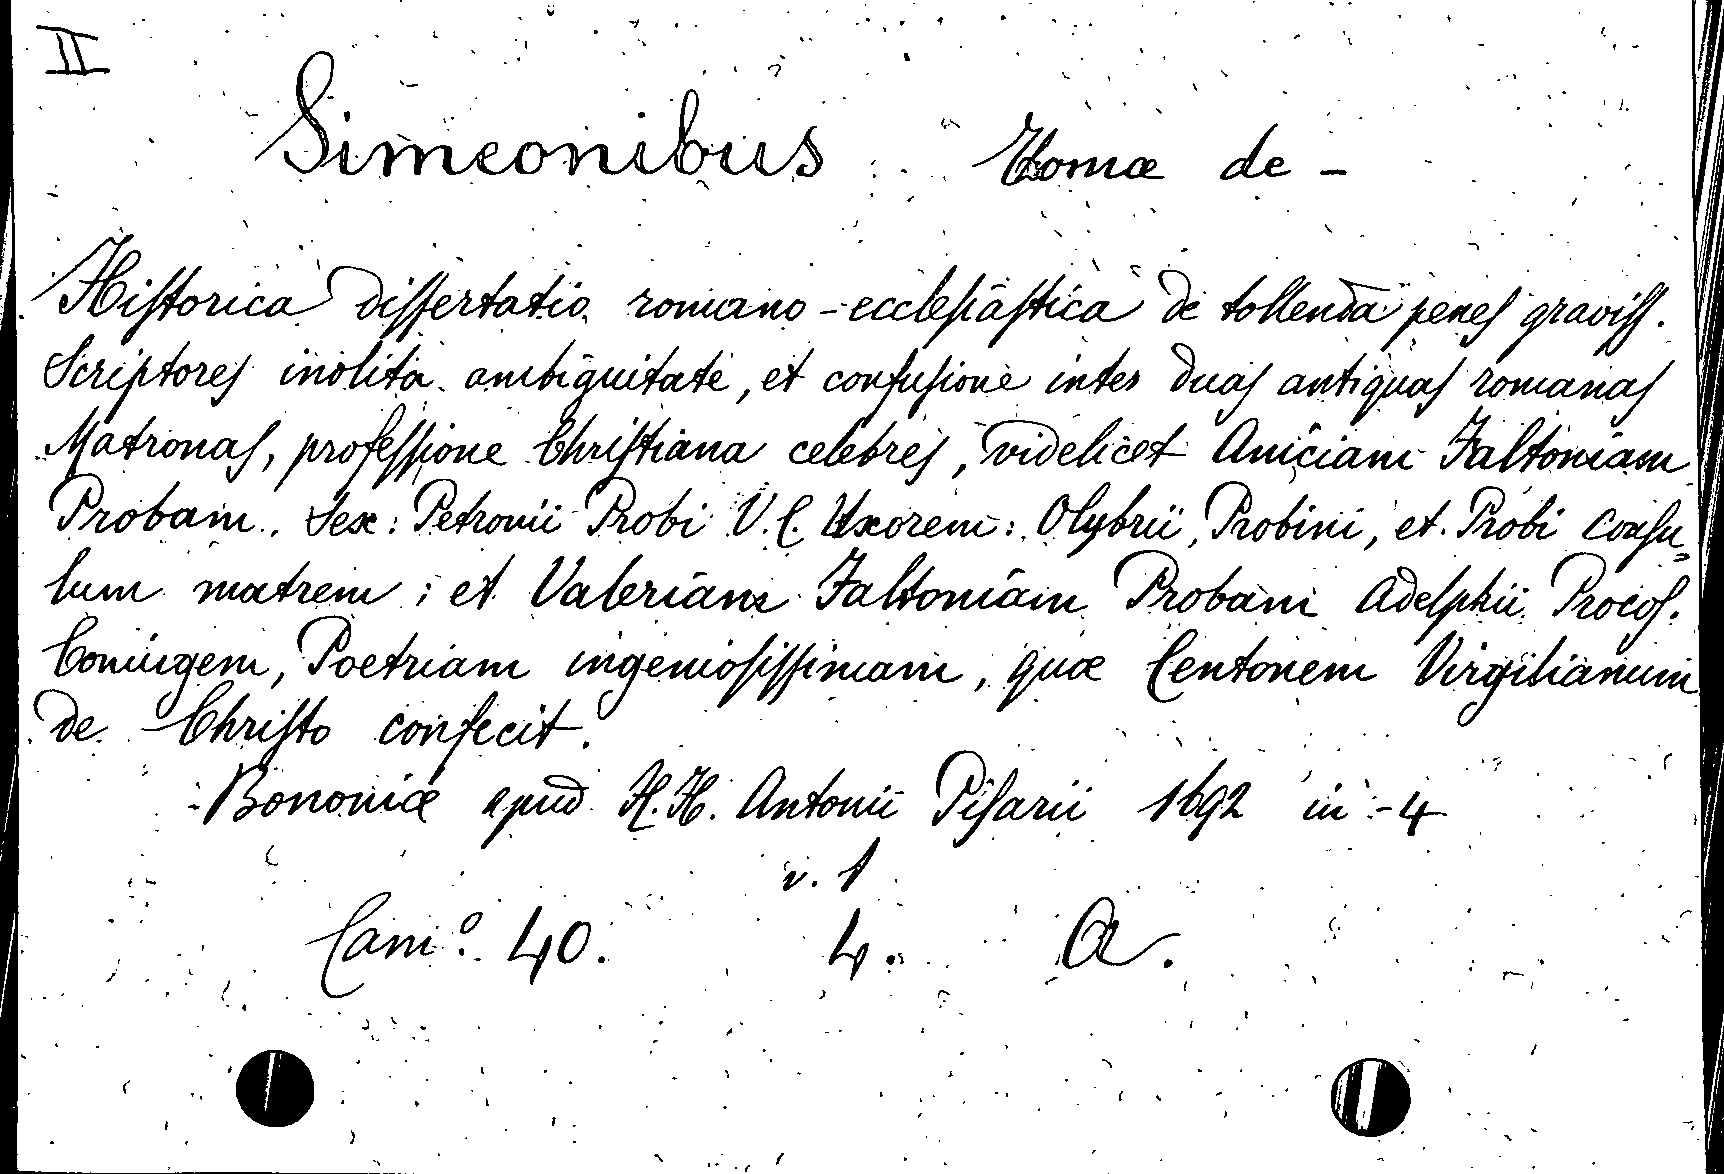 II
Simeonibus Tomæ de -
Hiſtorica diſſertatio romano-eccleſiaſtica de tollenda peneſ graviſſ.
Scriptoreſ inolita ambiguitate, et confuſione inter duaſ antiquaſ romanaſ
Matronaſ, profeſſione Chriſtiana celebreſ, videlicet Aniciam Faltoniam
Probam. Sex: Petronii Probi V. C. Uxorem: Olybrii, Probini, et Probi Conſu=
lum matrem; et Valeriam Faltoniam Probam Adelphii Procoſ.
Coniugem, Poetriam ingenioſiſſimam, quæ Centonem Virgilianum
de Chriſto confecit.
Bononiæ apud H.H. Antonii Piſarii 1692 in-4
v. 1
Cam.º 40. 4. A.